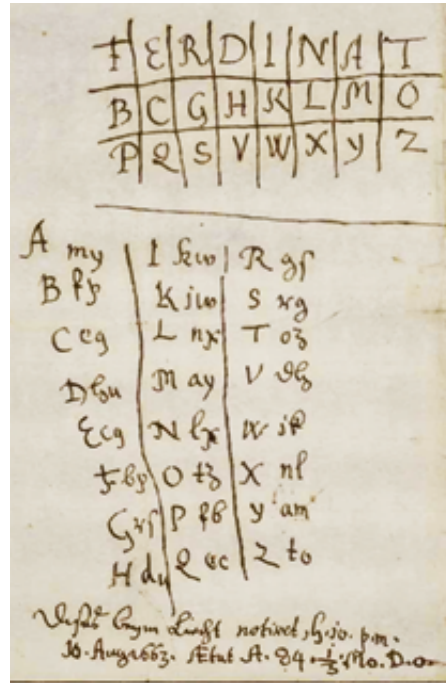 F E R D I N A T
B C G H K L M O
P Q S V W X Y Z
A my I kw R gs
B fp K iw S rg
C eq L nx T oz
D hu M ay V dh
E cq N lx W ik
F bp O tz X nl
G rs P fb Y am
H du Q ec Z to
beym Liecht notiret, h. 10. p.m.
10. Aug. 1663. Ætat. A. 84. Mo. D. 0.